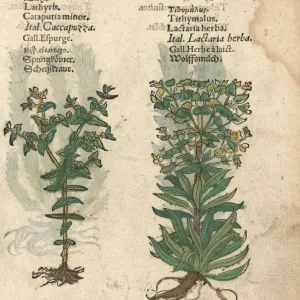 Lathyris.
Cataputia minor.
Ital. Caccapuzza.
Gall. Espurge.
Springkörner.
Scheißkraut.
Tithymalus.
Tithymalus.
Lactaria herba.
Ital. Lactaria herba.
Gall. Herbe à laict.
Wolffsmilch.